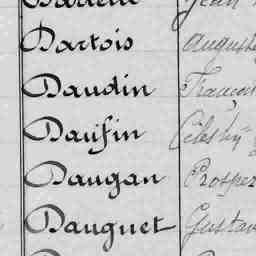 Dartois Auguste
Daudin François
Daufin
Daugan Prosper
Dauguet Gustav